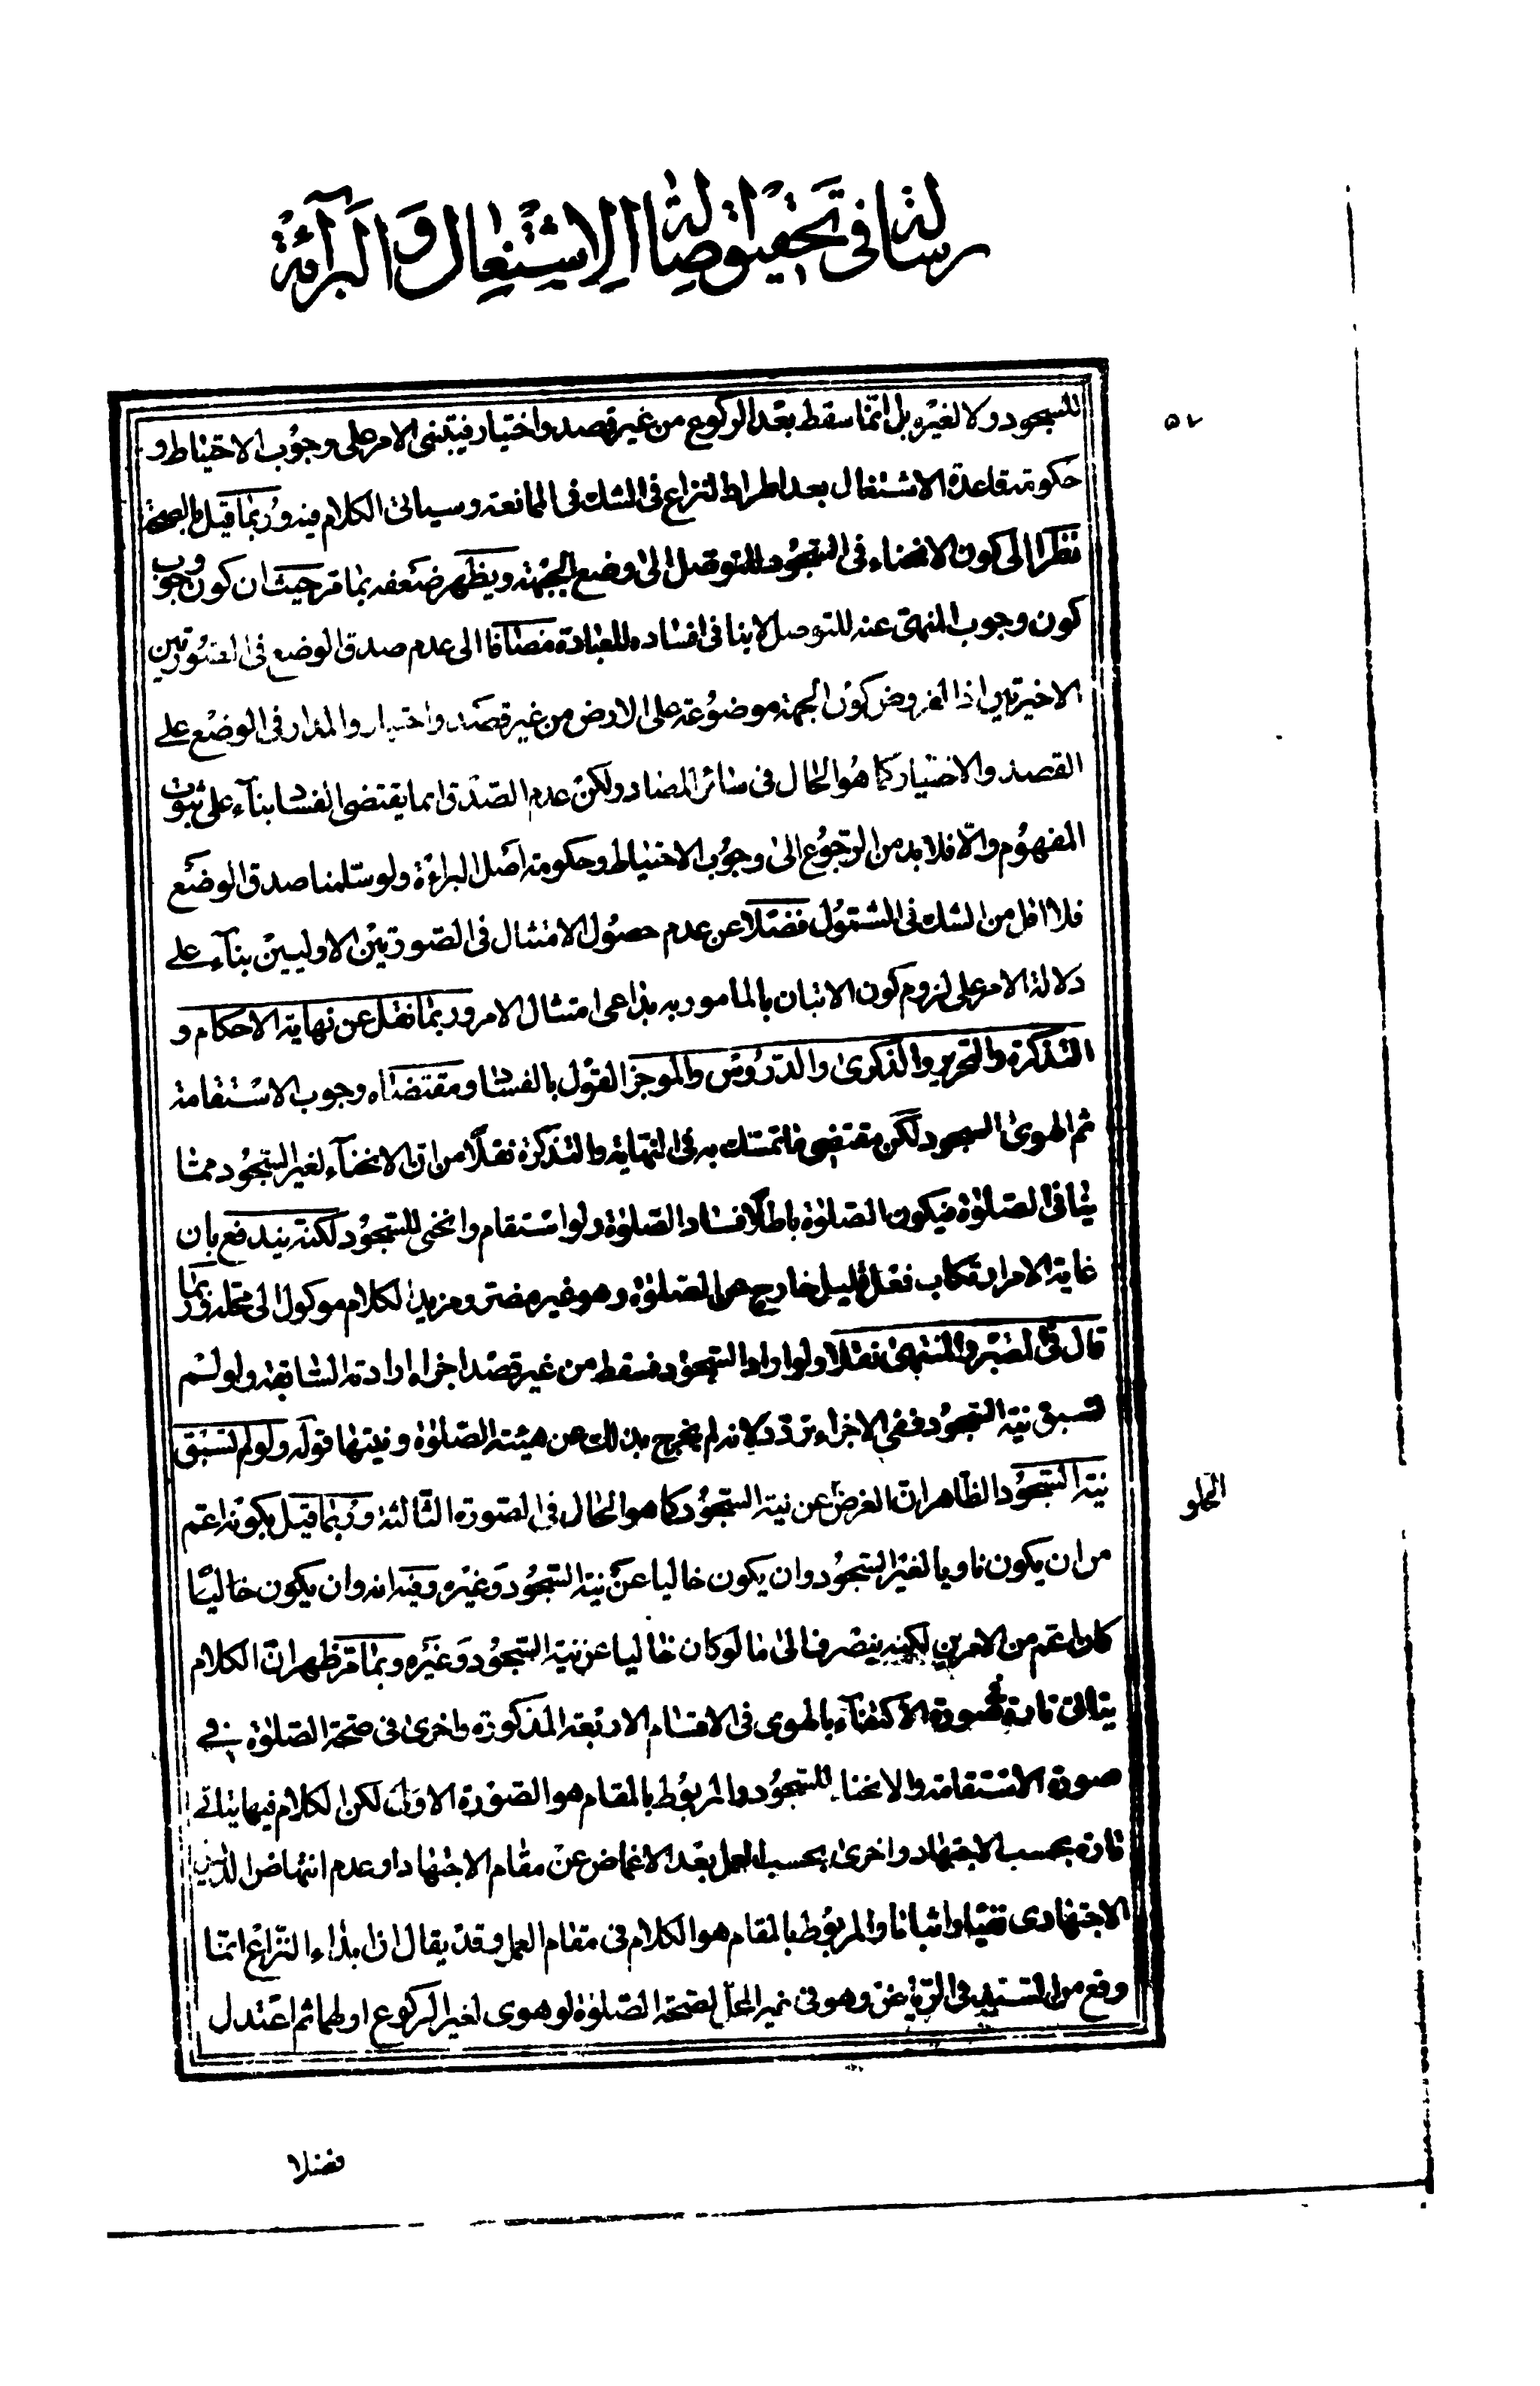 رسالة في تحقيق اصالة الاشتغال و البرائة
۵۷
للسجود ولا لغيره بل انما سقط بعد الركوع من غير قصد واختيار فيبتنى الامر على وجوب الاحتياط و
حكومة قاعدة الاشتغال بعد اطراد النزاع فى الشك فى المانعة وسياتى الكلام فيه وربما قيل بالصحة
نظرا الى كون الانحناء فى السجود للتوصل الى وضع الجبهة ويظهر ضعفه بما مر حيث ان كون وجوب
كون وجوب المنهى عنه للتوصل لا ينافى افساده للعبادة مضافا الى عدم صدق الوضع فى الصورتين
الاخيرتين اذا المفروض كون الجبهة موضوعة على الارض من غير قصد واختيار والمدار فى الوضع على
القصد والاختيار كما هو الحال فى سائر المصادر ولكن عدم الصدق انما يقتضى الفساد بناء على ثبوت
المفهوم والا فلا بد من الرجوع الى وجوب الاحتياط وحكومة اصل البراءة ولو سلمنا صدق الوضع
فلا اقل من الشك فى الشمول فضلا عن عدم حصول الامتثال فى الصورتين الاوليين بناء على
دلالة الامر على لزوم كون الاتيان بالمامور به بداعى امتثال الامر وربما نقل عن نهاية الاحكام و
التذكرة والتحرير والذكرى والدروس والموجز القول بالفساد ومقتضاه وجوب الاستقامة
ثم الهوى السجود لكن مقتضى ما تمسك به فى النهاية والتذكرة نقلا من ان الانحناء لغير السجود مما
ينافى الصلوة فيكون الصلوة باطلا فساد الصلوة ولو استقام وانحنى للسجود لكنه يندفع بان
غاية الامر ارتكاب فعل قليل خارج عن الصلوة وهو غير مضر ومزيد الكلام موكول الى محله وربما
قال فى المعتبر والمنتهى نقلا ولو اراد السجود فسقط من غير قصد اجزاه ارادته السابقة ولو لم
تسبق نية السجود ففى الاجزاء تردد لانه لم يخرج بذلك عن هيئة الصلوة ونيتها قوله ولو لم تسبق
نية السجود الظاهر ان الغرض عن نية السجود كما هو الحال فى الصورة الثالثة وربما قيل بكونه اعم
من ان يكون ناويا لغير السجود وان يكون خاليا عن نية السجود وغيره وفيه انه وان يكون خاليا
كان اعم من الامرين لكنه ينصرف الى ما لو كان خاليا عن نية السجود وغيره وبما مر ظهر ان الكلام
يتاتى تارة فى صورة الاكتفاء بالهوى فى الاقسام الاربعة المذكورة واخرى فى صحة الصلوة فى
صورة الاستقامة والانحناء للسجود والمربوط بالمقام هو الصورة الاولى لكن الكلام فيها يتاتى
تارة بحسب الاجتهاد واخرى بحسب العمل بعد الاغماض عن مقام الاجتهاد او عدم انتهاض الدليل
الاجتهادى نفيا واثباتا والمربوط بالمقام هو الكلام فى مقام العمل وقد يقال ان ابداء النزاع انما
وقع من السيد فى الرياض وهو فى غير المحل لصحة الصلوة لو هوى لغير الركوع اولهما ثم اعتدل
الخلو
فضلا